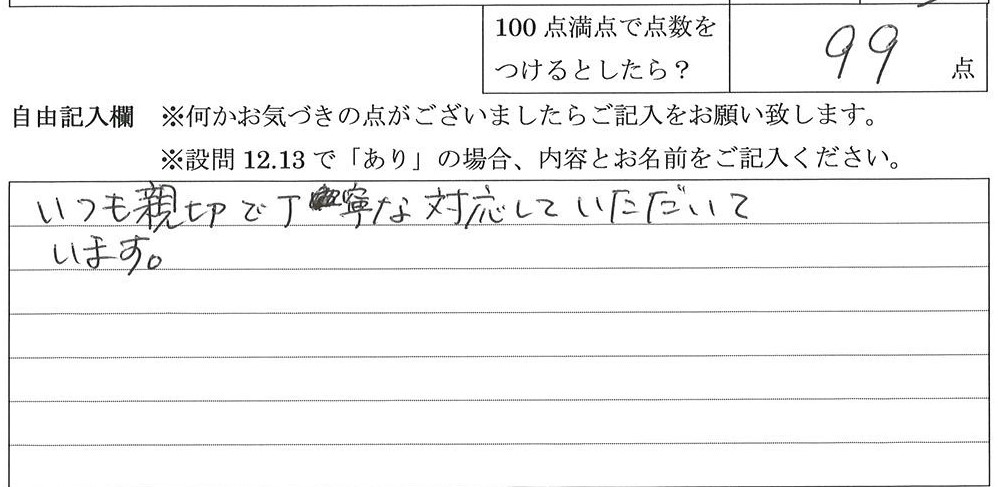 100点満点で点数を
つけるとしたら？
99 点
自由記入欄 ※何かお気づきの点がございましたらご記入をお願い致します。
※設問12.13で「あり」の場合、内容とお名前をご記入ください。
いつも親切で丁寧な対応していただいて
います。